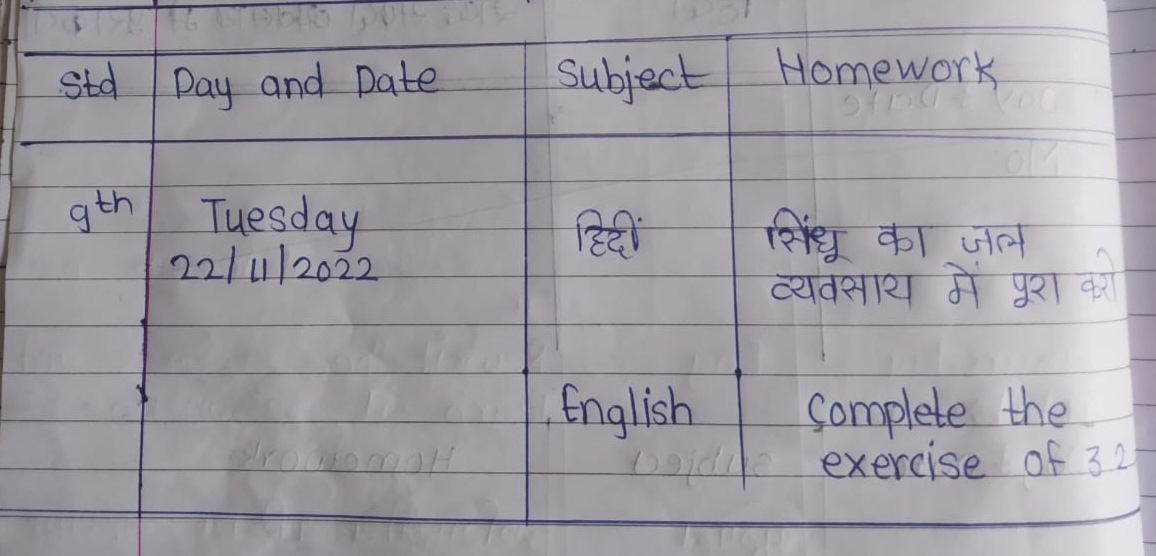 Std Day and Date Subject Homework
9th Tuesday हिंदीं सिंधू का जल
22/11/2022 व्यवसाय में पूरा करो
English Complete the
exercise of 32